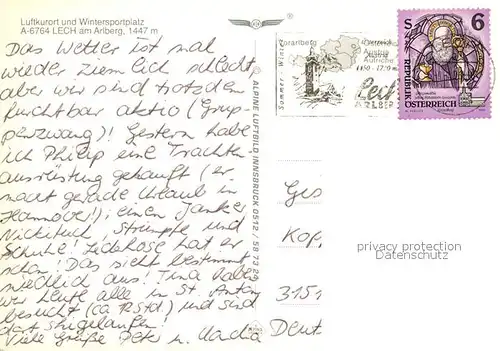 Luftkurort und Wintersportplatz
A-6764 LECH am Arlberg, 1447 m
Das Wetter ist mal
wieder ziemlich schlecht
aber wir sind trotzdem
furchtbar aktiv (Grup-
penzwang)! Gestern habe
ich Philip eine Trachten-
ausrüstung gekauft (er
macht gerade Urlaub in
Hannover!); einen Janker
Nickituch, Strümpfe und
Schuhe! Lederhose hat er
schon! Das sieht bestimmt
niedlich aus! Tina haben
wir heute alle in St. Anton
besucht (ca 12 Std.) und sind
dort skigelaufen!
Viele Grüße Peter u.
ALPINE LUFTBILD INNSBRUCK 0512 / 58 73 29
Sommer - Winter
Vorarlberg
Österreich
Austria
Autriche
1450 - 1730 m
Lech
ARLBERG
S 6
REPUBLIK
ÖSTERREICH
Ges
Kop
3151
Deut
privacy protection